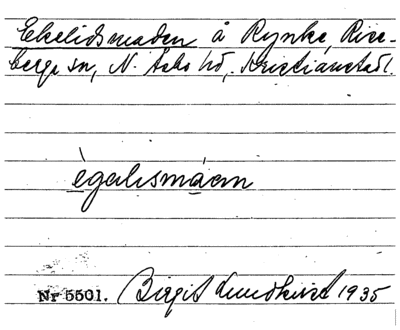 Ekelidsmaden å Rynke, Rise-
berga sn, N. Åsbo hd, Kristianstads l.
ègalismácm
Nr 5501. Birgit Lundkvist 1935